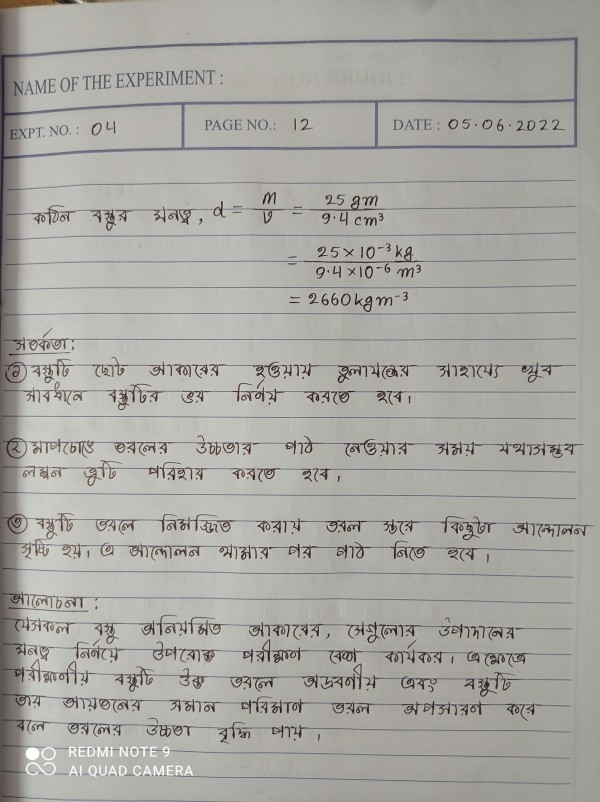 NAME OF THE EXPERIMENT :
EXPT. NO. : 04 PAGE NO.: 12 DATE : 05.06.2022
কঠিন বস্তুর ঘনত্ব, d = m/v = 25 gm/9.4 cm³
= 25×10⁻³ kg/9.4×10⁻⁶ m³
= 2660 kgm⁻³
সতর্কতা:
① বস্তুটি ছোট আকারের হওয়ায় তুলাযন্ত্রের সাহায্যে খুব
সাবধানে বস্তুটির ভর নির্ণয় করতে হবে।
② মাপচোঙে তরলের উচ্চতার পাঠ নেওয়ার সময় যথাসম্ভব
লম্বন ত্রুটি পরিহার করতে হবে।
③ বস্তুটি তরলে নিমজ্জিত করায় তরল স্তরে কিছুটা আন্দোলন
সৃষ্টি হয়। এ আন্দোলন থামার পর পাঠ নিতে হবে।
আলোচনা :
যেসকল বস্তু অনিয়মিত আকারের, সেগুলোর উপাদানের
ঘনত্ব নির্ণয়ে উপরোক্ত পরীক্ষণ বেশ কার্যকর। এক্ষেত্রে
পরীক্ষণীয় বস্তুটি উক্ত তরলে অদ্রবণীয় এবং বস্তুটি
তার আয়তনের সমান পরিমাণ তরল অপসারণ করে
বলে তরলের উচ্চতা বৃদ্ধি পায়।
REDMI NOTE 9
AI QUAD CAMERA